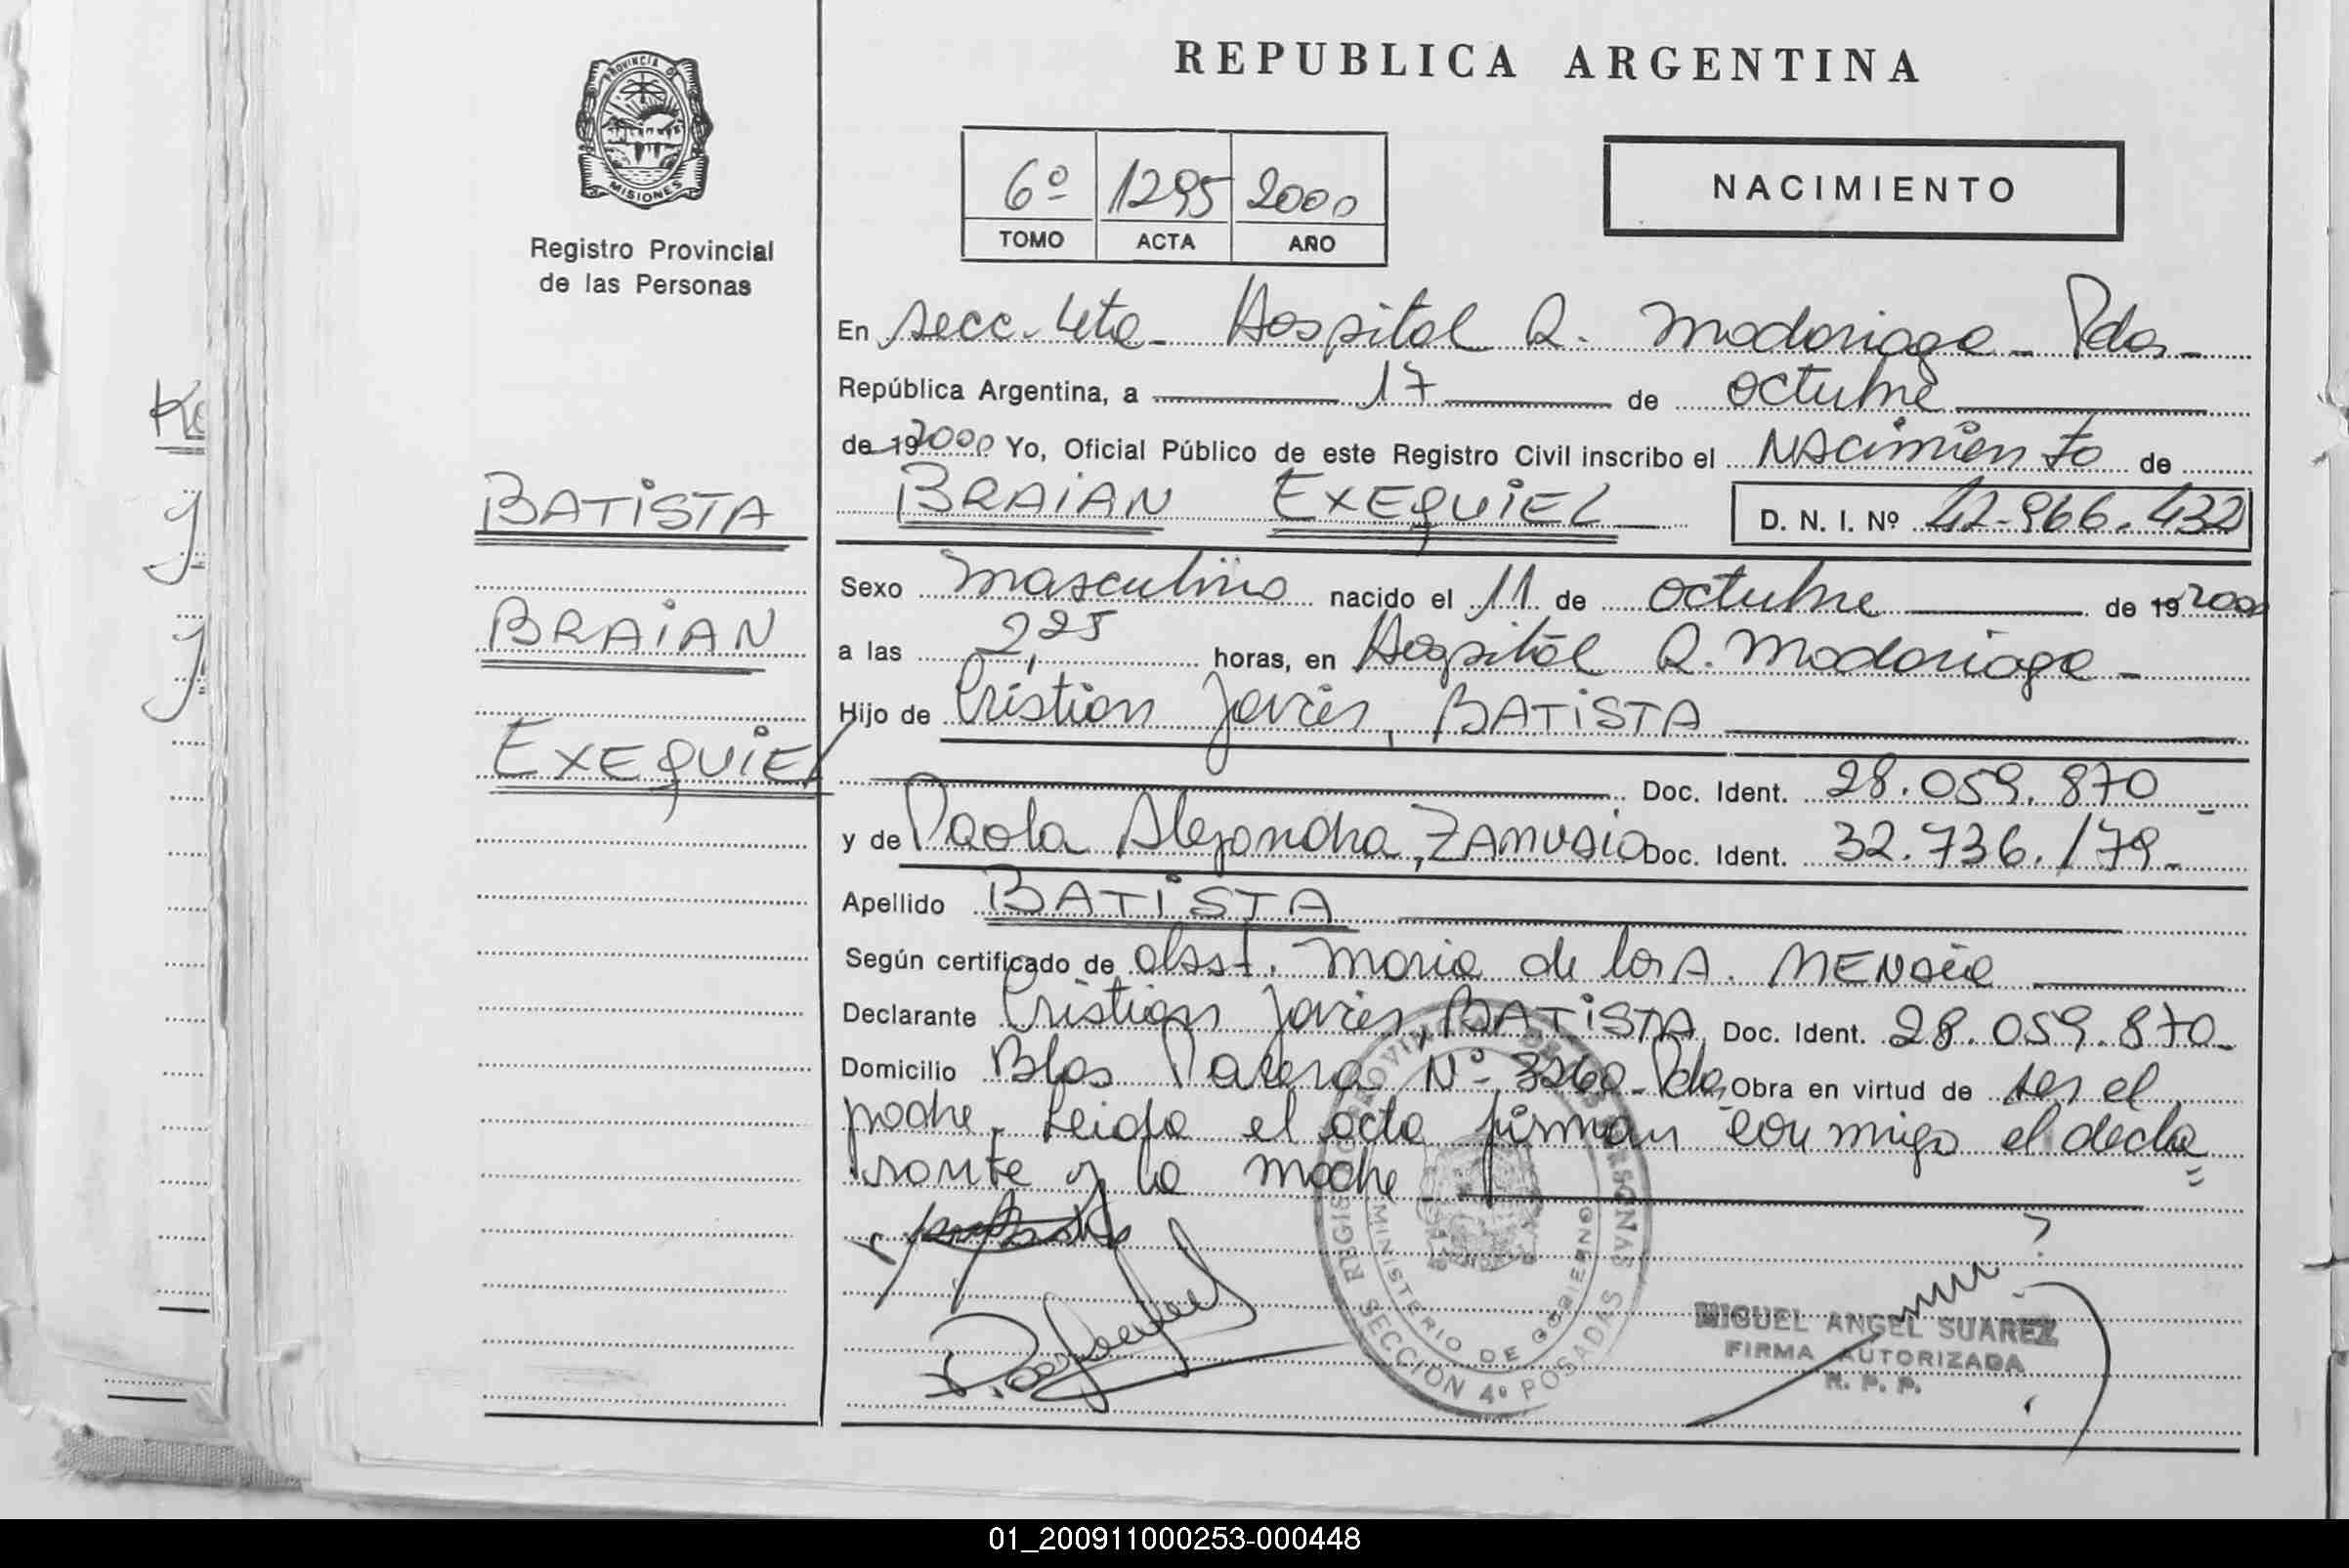 REPUBLICA ARGENTINA
PROVINCIA DE
MISIONES
Registro Provincial
de las Personas
6º 1295 2000
TOMO ACTA AÑO
NACIMIENTO
En secc. 4ta - Hospital R. Madariaga - Pdas -
República Argentina, a 17 de octubre
de 19 2000 Yo, Oficial Público de este Registro Civil inscribo el NACimiento de
BATISTA
BRAIAN EXEQUIEL D. N. I. Nº 42.966.432
Sexo masculino nacido el 11 de octubre de 19 2000
BRAIAN
a las 2,25 horas, en Hospital R. Madariaga -
Hijo de Cristian Javier, BATISTA
EXEQUIEL
Doc. Ident. 28.059.870 -
y de Paola Alejandra, Doc. Ident. 32.736.179 -
Apellido BATISTA
Según certificado de obst. Maria de los A.
Declarante Cristian Javier, BATISTA, Doc. Ident. 28.059.870 -
Domicilio Blas Parera Nº 3260 - Pdas Obra en virtud de ser el
padre. Leida el acta firman conmigo el decla
rante y la madre -
REGISTRO PROVINCIAL DE LAS PERSONAS
MINISTERIO DE GOBIERNO
SECCION 4º POSADAS
MIGUEL ANGEL SUAREZ
FIRMA AUTORIZADA
R. P. P.
01_200911000253-000448